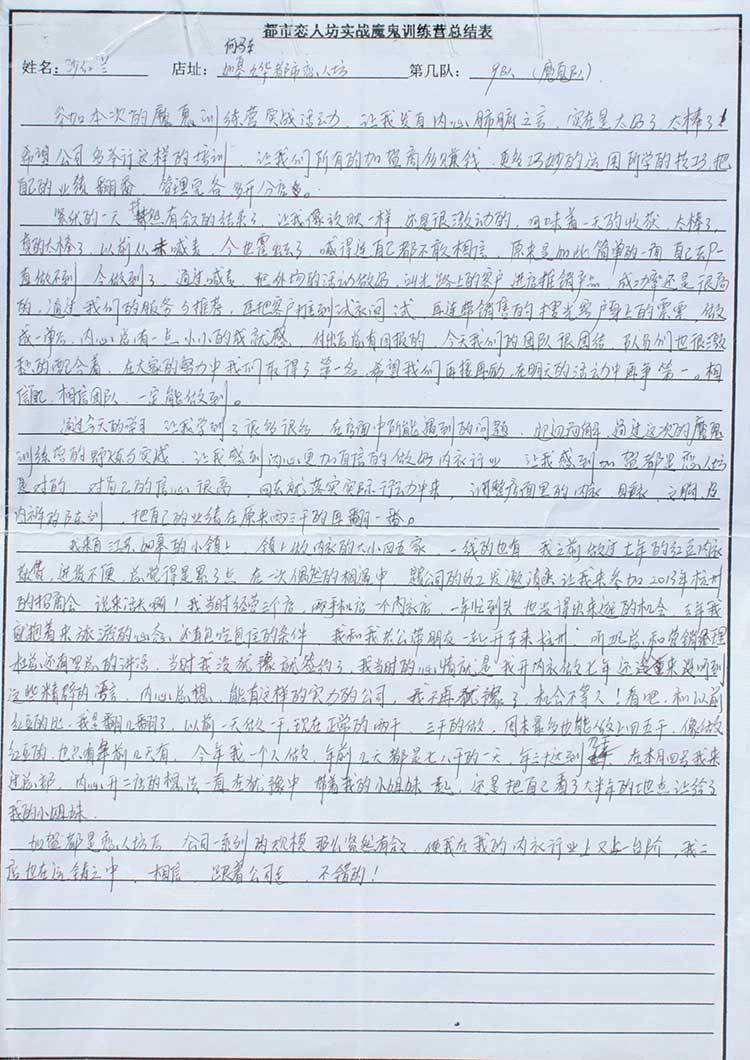 都市恋人坊实战魔鬼训练营总结表
姓名: 兰 店址: 如皋 都市恋人坊 第几队: 9队 (魔鬼队)
参加本次的魔鬼训练营实战活动,让我发自内心肺腑之言,实在是太好了,太棒了!
希望公司多举行这样的培训,让我们所有的加盟商多赚钱,更多巧妙的运用所学的技巧,把
自己的业绩翻番,管理完备多开分店。
紧张的一天井然有条的结束了,让我像放映一样还是很激动的,回味着一天的收获,太棒了,
真的太棒了,以前从未喊麦,今也 了,喊得连自己都不敢相信,原来是如此简单的一词自己却一
直做不到,今做到了,通过喊麦,把外场的活动做好,训 路上的客户进行推销产品,成功率还是很高
的,通过我们的服务与推荐,再把客户推到试衣间一试,再连带销售的 客户身上的需要,做
成一单后,内心总有一点小小的成就感,付出总有回报的,今天我们的团队很团结,队员们也很激
积的配合着,在大家的努力中我们取得了第一名,希望我们再接再励,在明天的活动中再争第一。相
信 ,相信团队,一定能做到。
通过今天的学习让我学到了很多很多,在店面中所能遇到的问题,迎刃而解,通过这次的魔鬼
训练营的 与实战,让我感到内心更加有信的做好内衣行业,让我感到加盟都是恋人坊
是对的,对自己的信心很高,回去就落实实际行动中来,调整店面里的内衣、 、文胸及
内裤的陈列,把自己的业绩在原来两三千的再翻一番。
我来自江苏如皋的小镇上,镇上做内衣的大小四五家,一线的也有,我之前做过七年的红豆内衣
,进货不便,总觉得是累了点,在一次偶然的相遇中, 公司的员工发邀请函让我来参加2013年杭州
的招商会,说来话长啊!我当时经营三个店,两手机店一个内衣店,一年忙到头也没得出来 的机会,去年我
就抱着来旅游的心态,还有包吃包住的条件,我和我老公带朋友一起开车来杭州,听 总,和营销经理
杜总还有罗总的讲话,当时我没犹豫就签约了,我当时的心情就是我开内衣做七年还 来没听到
这些精辟的语言,内心总想,能有这样的实力的公司,我不再犹豫了,机会不等人!看吧,和以前
红豆的比,我是翻几翻了,以前一天做一千,现在正常的两千、三千的做,周末最多也能做上四五千,像做
红豆的,也只有年前几天有,今年我一个人做,年前几天都是七八千的一天,年三十达到 在本月四号我来
过总部,内心开二店的想法一直在犹豫中,带着我的小姐妹一起,还是把自己看了大半年的地点让给了
我的小姐妹。
加盟都是恋人坊后,公司一系列的规模那么坚然有条,使我在我的内衣行业上又上一台阶,我二
店也在运筹之中,相信 跟着公司走,不错的!